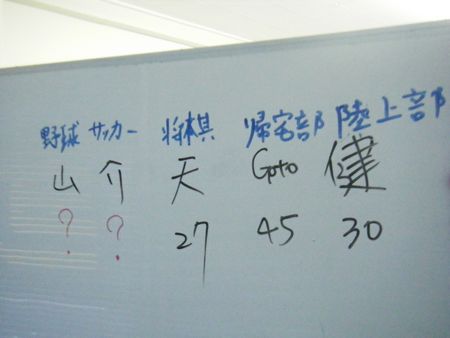 野球 サッカー 将棋 帰宅部 陸上部
山 介 天 Goto 健
? ? 27 45 30